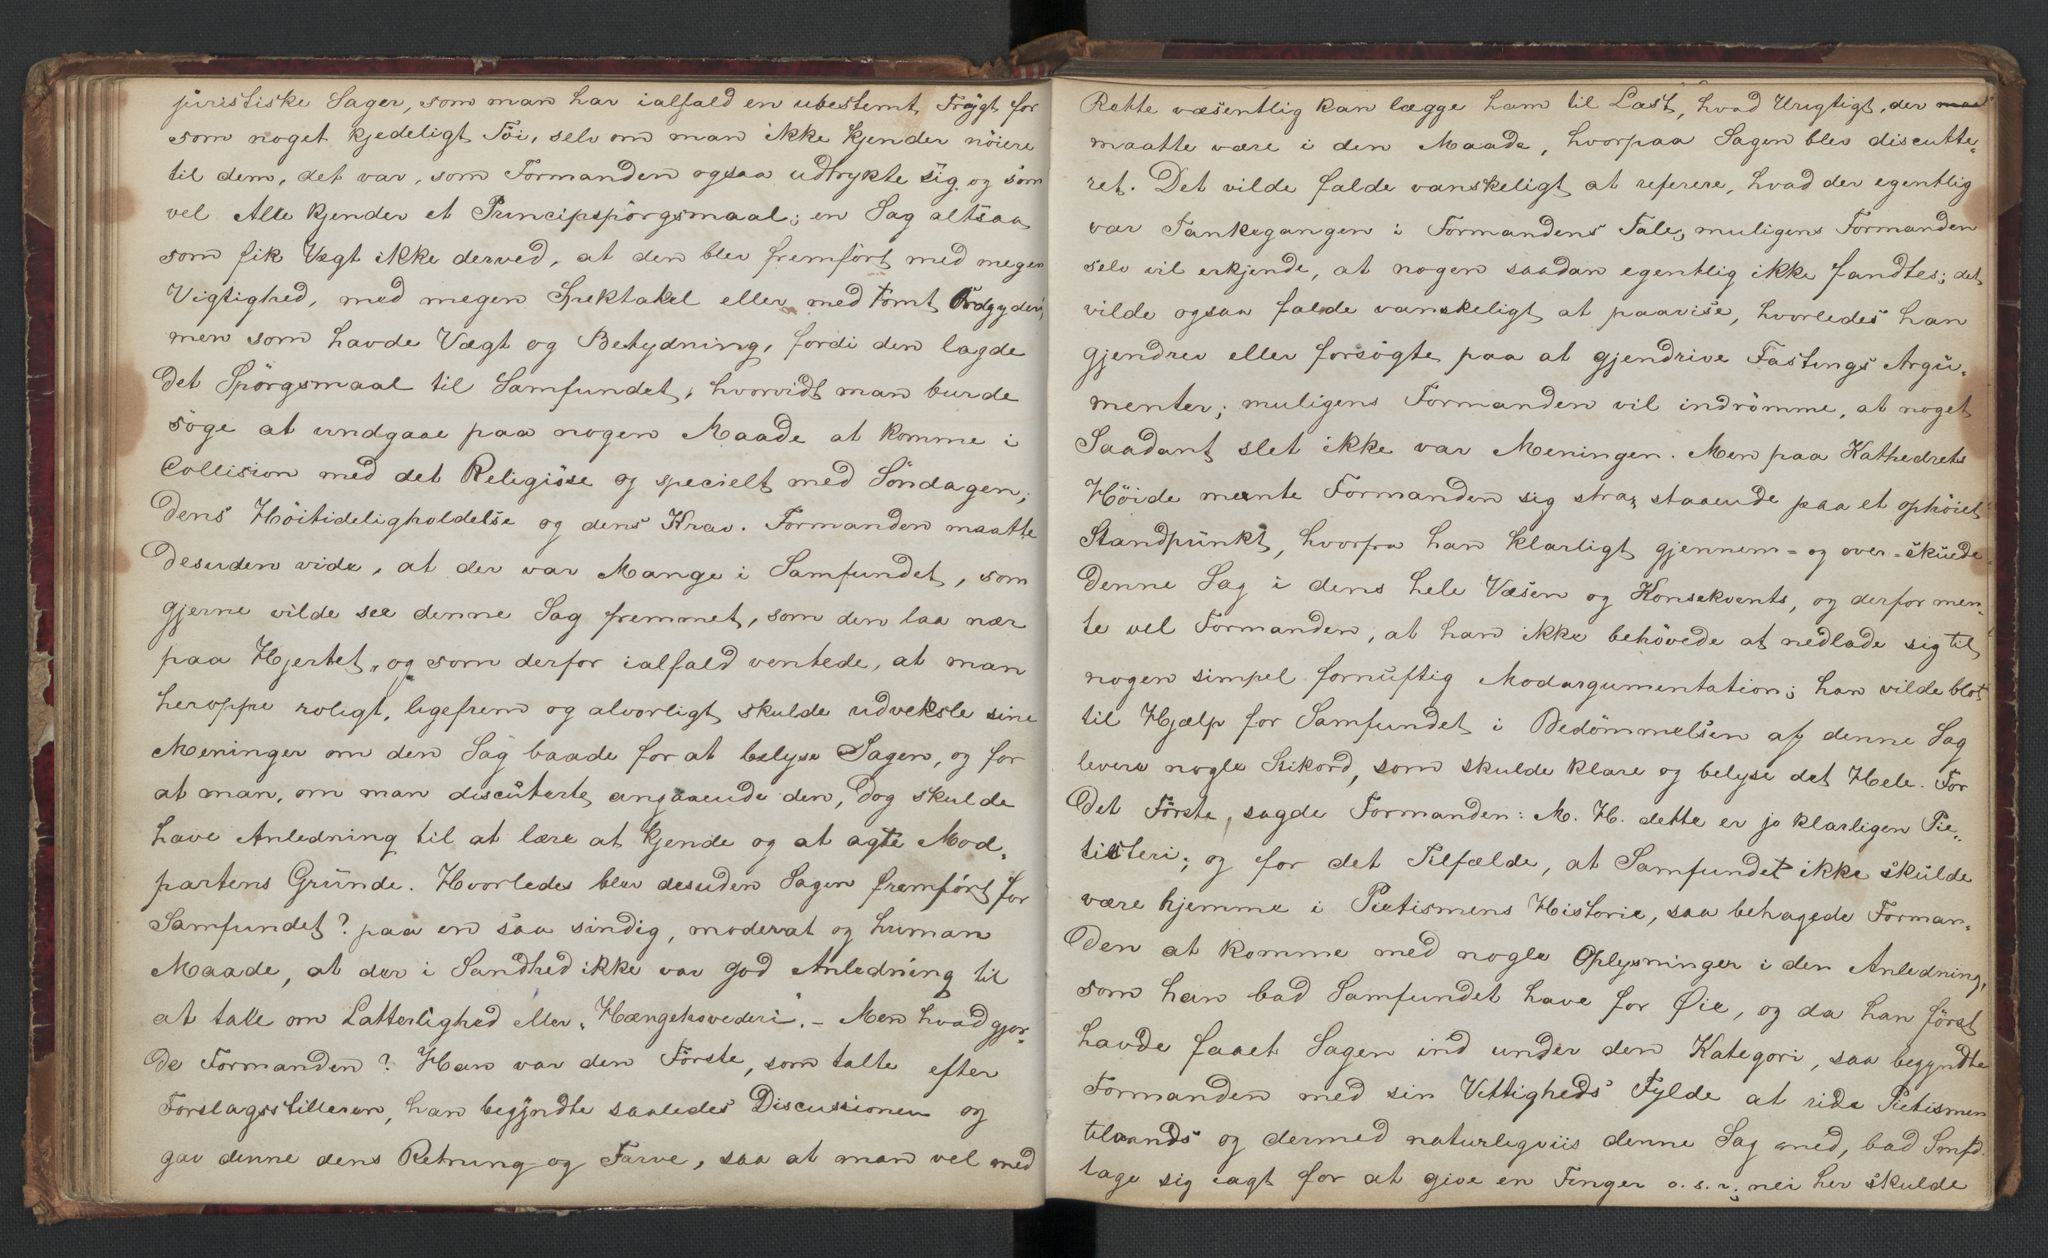 juristiske Sager, som man har ialfald en ubestemt Frygt for
som noget kjedeligt Töi, selv om man ikke kjender nöiere
til dem, det var, som Formanden ogsaa udtrykte sig og som
vel Alle kjender et Principspörgsmaal; en Sag altsaa
som fik Vægt ikke derved, at den blev fremfört med megen
Vigtighed, med megen Spektakel eller med tomt Ordgyderi,
men som havde Vægt og Betydning, fordi den lagde
det Spörgsmaal til Samfundet, hvorvidt man burde
söge at undgaae paa nogen Maade at komme i
Collision med det Religiöse og specielt med Söndagen,
dens Höitideligholdelse og dens Krav. Formanden maatte
desuden vide, at der var Mange i Samfundet, som
gjerne vilde see denne Sag fremmet, som den laa nær
paa Hjertet, og som derfor ialfald ventede, at man
heroppe roligt, ligefrem og alvorligt skulde udveksle sine
Meninger om den Sag baade for at belyse Sagen, og for
at man, om man discuterte angaaende den, dog skulde
have Anledning til at lære at kjende og at agte Mod-
partens Grunde. Hvorledes blev desuden Sagen fremfört for
Samfundet? paa en saa sindig, moderat og human
Maade, at der i Sandhed ikke var god Anledning til
at tale om Latterlighed eller "Hængehovederi". - Men hvad gjor-
de Formanden? Han var den Förste, som talte efter
Forslagsstilleren, han begyndte saaledes Discussionen og
gav denne dens Retning og Farve, saa at man vel med
Rette væsentlig kan lægge ham til Last, hvad Urigtigt, der
maatte være i den Maade, hvorpaa Sagen blev discutte-
ret. Det vilde falde vanskeligt at referere, hvad der egentlig
var Tankegangen i Formandens Tale; muligens Formanden
selv vil erkjende, at nogen saadan egentlig ikke fandtes; det
vilde ogsaa falde vanskeligt at paavise, hvorledes han
gjendrev eller forsögte paa at gjendrive Fastings Argu-
menter; muligens Formanden vil indrömme, at noget
Saadant slet ikke var Meningen. Men paa Kathedrets
Höide mente Formanden sig strax staaende paa et ophöiet
Standpunkt, hvorfra han klarligt gjennem- og over-skuede
denne Sag i dens hele Væsen og Konsekvents, og derfor men-
te vel Formanden, at han ikke behövede at nedlade sig til
nogen simpel fornuftig Modargumentation; han vilde blot
til Hjælp for Samfundet i Bedömmelsen af denne Sag
levere nogle Stikord, som skulde klare og belyse det Hele. For
det Förste, sagde Formanden: M. H. dette er jo klarligen Pie-
tisteri; og for det Tilfælde, at Samfundet ikke skulde
være hjemme i Pietismens Historie, saa behagede Forman-
den at komme med nogle Oplysninger i den Anledning,
som han bad Samfundet have for Øie, og da han först
havde faaet Sagen ind under den Kategori, saa begyndte
Formanden med sin Vittigheds Fylde at ride Pietismen
tilvands og dermed naturligviis denne Sag med, bad Smfd.
tage sig iagt for at give en Finger o. s. v.; nei her skulde